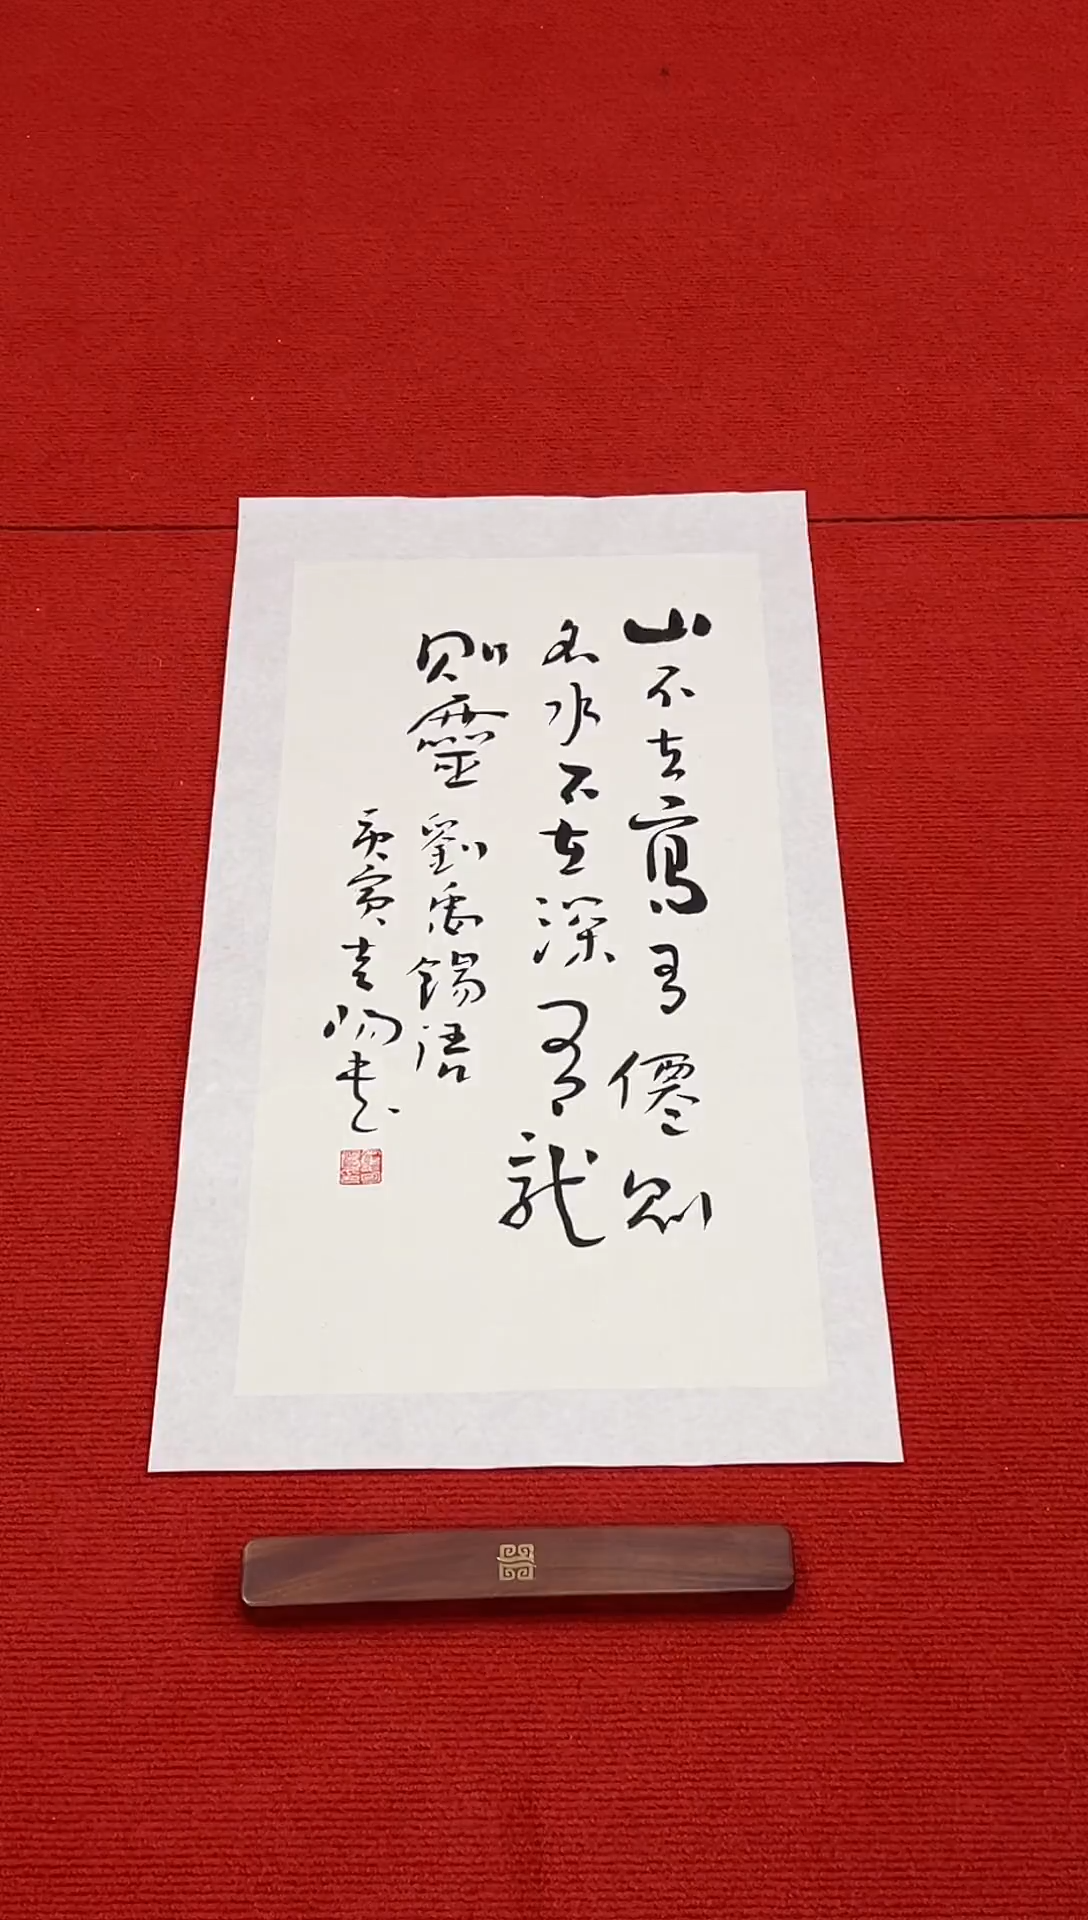 山不在高有僊則
名水不在深有龍
則靈 劉禹錫語
庚寅 书